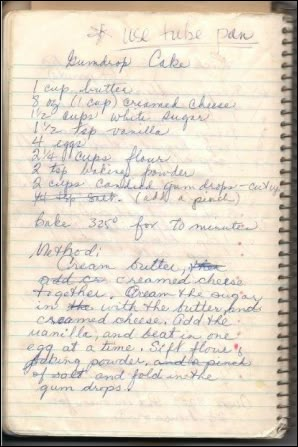 * use tube pan
Gumdrop Cake
1 cup butter
8 oz (1 cup) creamed cheese
1½ cups white sugar
1½ tsp vanilla
4 eggs
2¼ cups flour
2 tsp baking powder
2 cups candied gumdrops - cut up
¼ tsp salt. (add a pinch)
Bake 325° for 70 minutes
Method:
Cream butter, then
add cr creamed cheese
together. Cream the sugar
in the with the butter and
creamed cheese. Add the
vanilla, and beat in one
egg at a time. Sift flour &
baking powder, and a pinch
of salt and fold in the
gum drops.